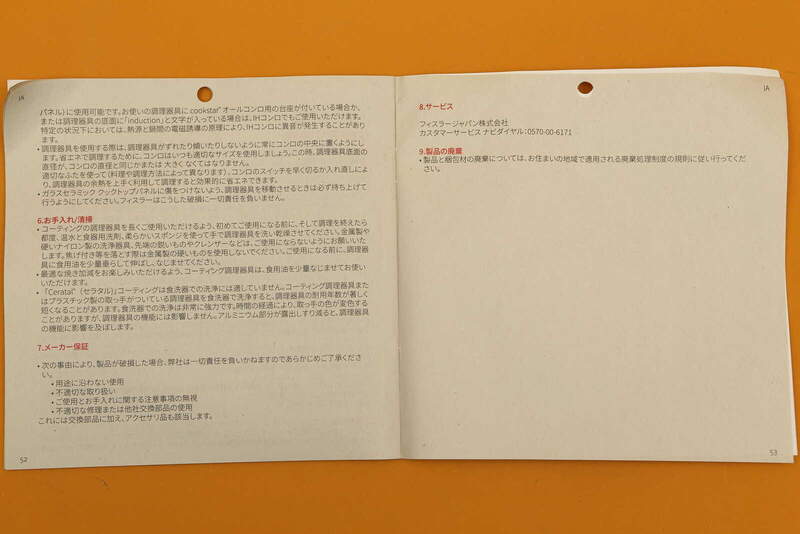 JA
パネル)に使用可能です。お使いの調理器具に cookstar®オールコンロ用の台座が付いている場合か、
または調理器具の底面に「induction」と文字が入っている場合は、IHコンロでもご使用いただけます。
特定の状況下においては、熱源と鍋間の電磁誘導の原理により、IHコンロに異音が発生することがあり
ます。
• 調理器具を使用する際は、調理器具がずれたり傾いたりしないように常にコンロの中央に置くようにし
ます。省エネで調理するために、コンロはいつも適切なサイズを使用しましょう。この時、調理器具底面の
直径が、コンロの直径と同じかまたは 大きくなくてはなりません。
適切なふたを使って(料理や調理方法によって異なります)、コンロのスイッチを早く切るか入れ直しによ
り、調理器具の余熱を上手く利用して調理すると効果的に省エネできます。
• ガラスセラミック クックトップパネルに傷をつけないよう、調理器具を移動させるときは必ず持ち上げて
行うようにしてください。フィスラーはこうした破損に一切責任を負いません。
6.お手入れ/清掃
• コーティングの調理器具を長くご使用いただけるよう、初めてご使用になる前に、そして調理を終えたら
都度、温水と食器用洗剤、柔らかいスポンジを使って手で調理器具を洗い乾燥させてください。金属製や
硬いナイロン製の洗浄器具、先端の鋭いものやクレンザーなどは、ご使用にならないようにお願いいた
します。焦げ付き等を落とす際は金属製の硬いものを使用しないでください。ご使用になる前に、調理器
具に食用油を少量垂らして伸ばし、なじませてください。
• 最適な焼き加減をお楽しみいただけるよう、コーティング調理器具は、食用油を少量なじませてお使い
いただけます。
• 「Ceratal®（セラタル）」コーティングは食洗器での洗浄には適していません。コーティング調理器具また
はプラスチック製の取っ手がついている調理器具を食洗器で洗浄すると、調理器具の耐用年数が著しく
短くなることがあります。食洗器での洗浄は非常に強力です。時間の経過により、取っ手の色が変色する
ことがありますが、調理器具の機能には影響しません。アルミニウム部分が露出しすり減ると、調理器具
の機能に影響を及ぼします。
7.メーカー保証
• 次の事由により、製品が破損した場合、弊社は一切責任を負いかねますのであらかじめご了承くださ
い。
• 用途に沿わない使用
• 不適切な取り扱い
• ご使用とお手入れに関する注意事項の無視
• 不適切な修理または他社交換部品の使用
これには交換部品に加え、アクセサリ品も該当します。
52
JA
8.サービス
フィスラージャパン株式会社
カスタマーサービス ナビダイヤル:0570-00-6171
9.製品の廃棄
• 製品と梱包材の廃棄については、お住まいの地域で適用される廃棄処理制度の規則に従い行ってくだ
さい。
53